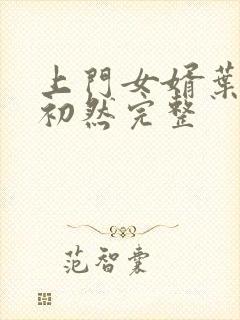 上門女婿葉
初然完整
范智囊